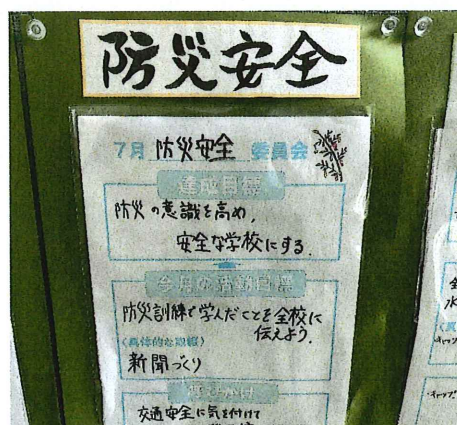 防災安全
7月 防災安全 委員会
達成目標
防災の意識を高め、
安全な学校にする.
今月の活動目標
防災訓練で学んだことを全校に
伝えよう.
新聞づくり
交通安全に気を付けて